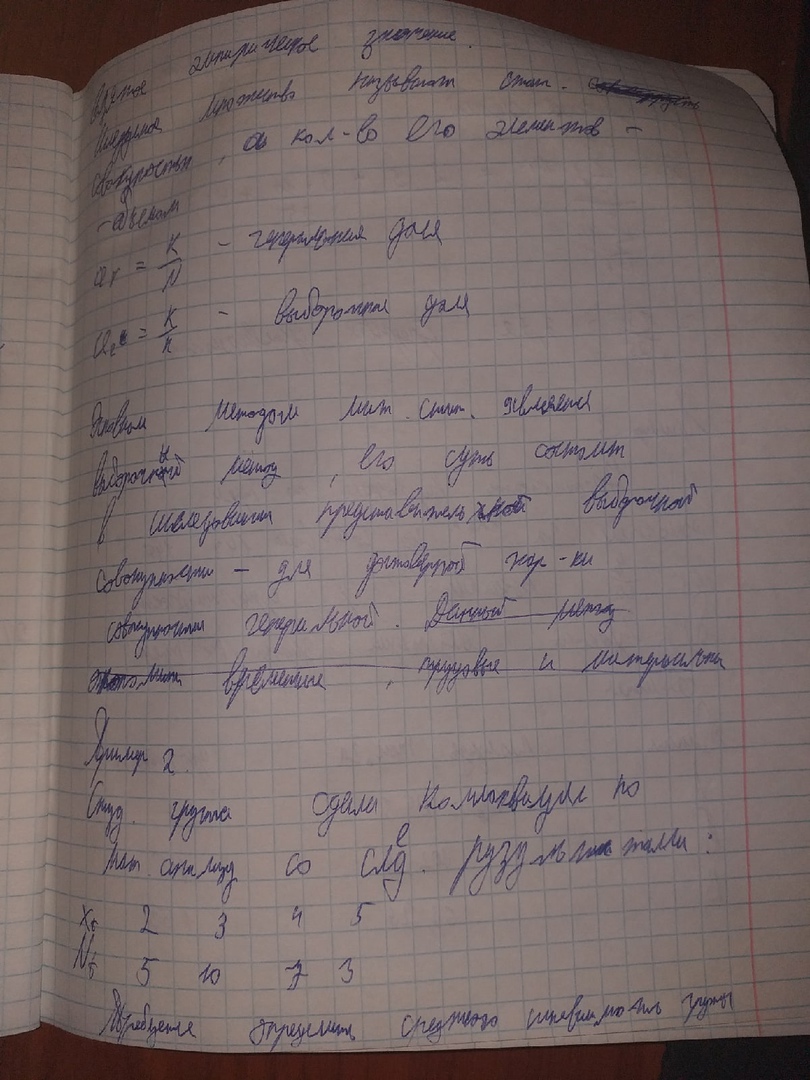 значение.
множество называют стат.
совокупности, а кол-во его элементов -
- объемом
= K/N - генеральная доля
= K/n - выборочная доля
Основным методом мат. стат. является
выборочный метод, его суть состоит
в исследовании представительной выборочной
совокупности - для достоверной хар-ки
совокупности генеральной. Данный метод
временные, трудовые и материальны
Пример 2.
Студ. группа сдали коллоквиум по
мат. анализу со след. рузультатами:
Xi 2 3 4 5
Ni 5 10 7 3
Требуется определить среднего группы